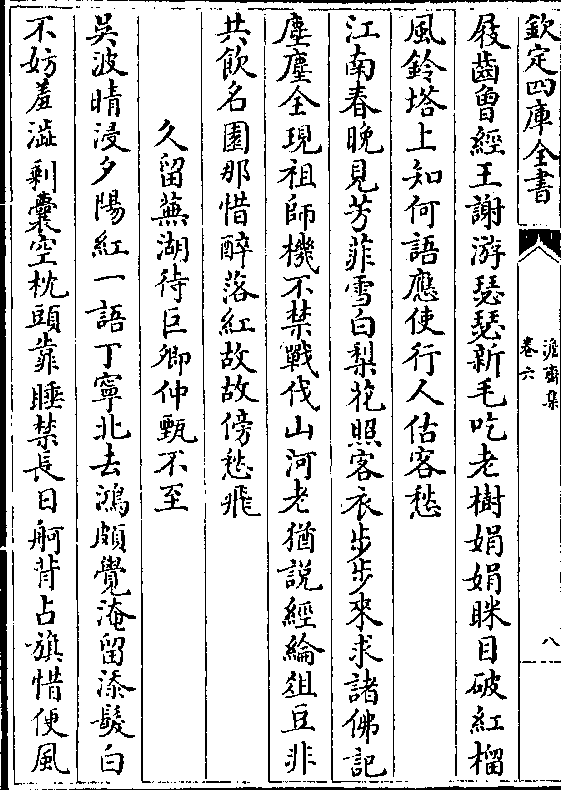 欽定四庫全書
澹齋集
卷六
八
屐齒曾經王謝游瑟瑟新毛吃老樹娟娟眯目破紅榴
風鈴塔上知何語應使行人估客愁
江南春晚見芳菲雪白梨花照客衣步步來求諸佛記
塵塵全現祖師機不禁戰伐山河老猶說經綸俎豆非
共飲名園那惜醉落紅故故傍愁飛
久留蕪湖待巨卿仲甄不至
吳波晴浸夕陽紅一語丁寧北去鴻頗覺淹留添髮白
不妨羞澁剩囊空枕頭靠睡禁長日舸背占旗惜便風